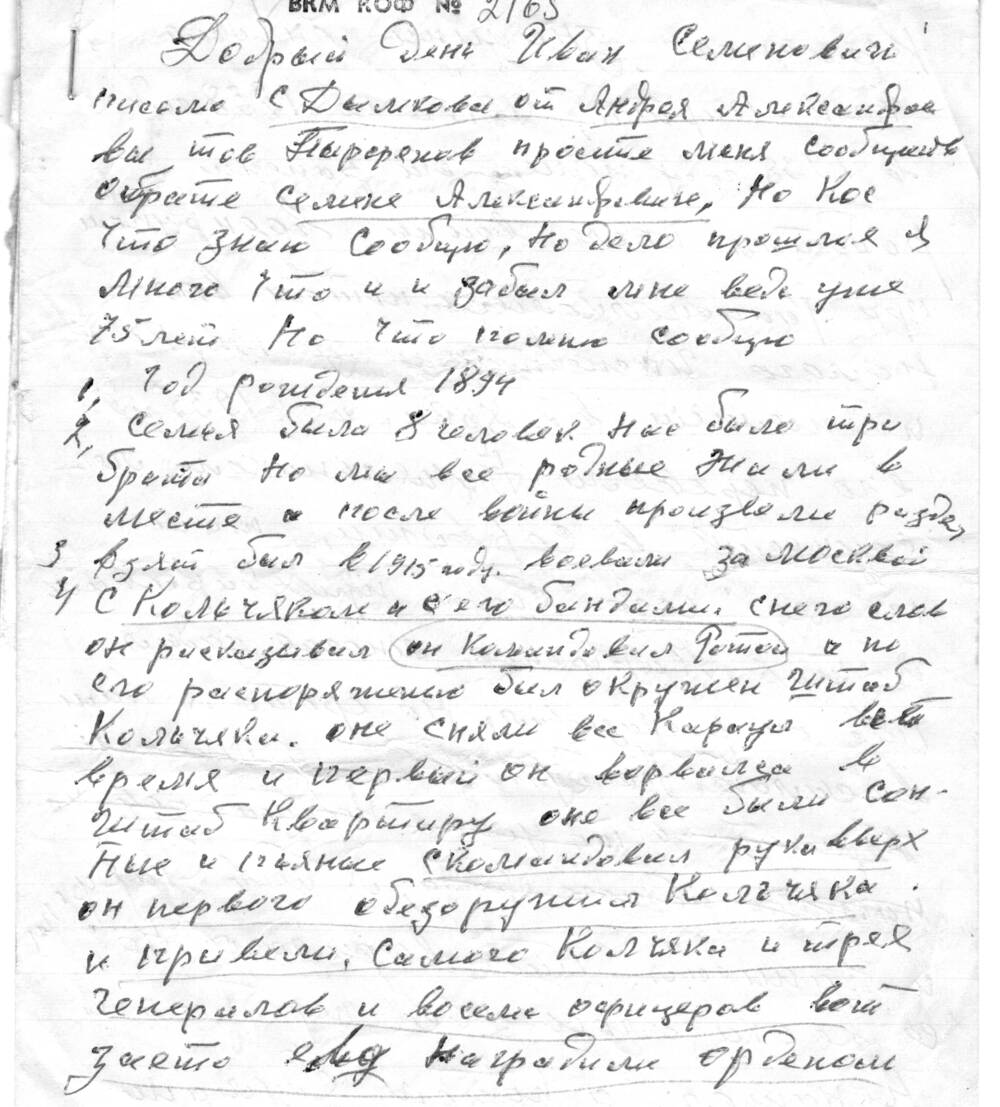 ВКМ КОФ № 2165
Добрый день Иван Семинович
письмо с Дымкова от Андрея Александров
вы тов Парфенов просите меня сообщить
обрате Семене Александровиче, Но Кое
что знаю сообщю, Но дело прошлоя я
много что и и забыл мне ведь уже
75 лет Но что помню сообщю
1, год рождения 1894
2, семья была 8 человек нас было три
брата но мы все родные жили в
месте а после войны произвели раздел
3 взят был в 1915 году. воевали за москвой
4 с Кольчяком и с его бандами. снего слов
он расказывал он Командовал Ротой и по
его распоряжению был окружен штаб
Кольчяка. оне сняли все Караулы
время и первый он ворвался в
штаб Квартиру оне все были сон-
ные и пьяные скомандовал руки вверх
он первого обезоружил Кольчяка.
и привели. Самого Колчяка и трех
генералов и восемь офицеров вот
заето ево наградили орденом